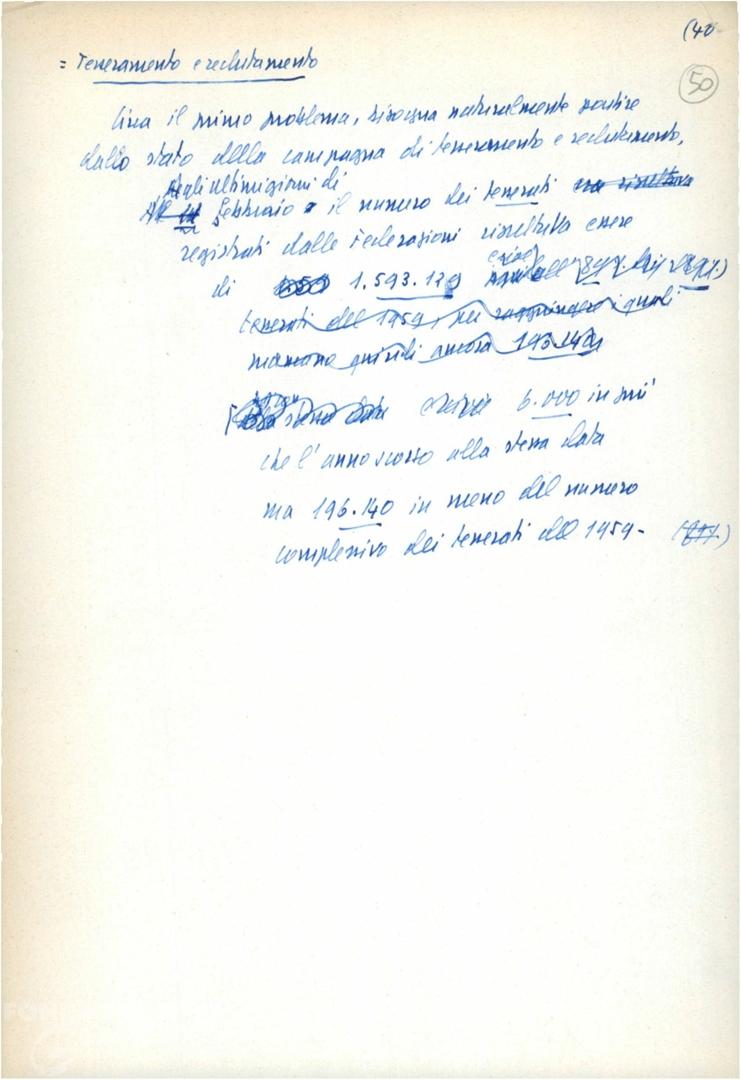 (40
50
= Tesseramento e reclutamento
Circa il primo problema, bisogna naturalmente partire
dallo stato della campagna di tesseramento e reclutamento.
Negli ultimi giorni di
febbraio il numero dei tesserati
registrati dalle Federazioni risultava essere
di 1.593.139
tesserati del 1959, per raggiungere i quali
mancano quindi ancora
6.000 in più
che l'anno scorso alla stessa data
ma 196.140 in meno del numero
complessivo dei tesserati del 1959-
FON